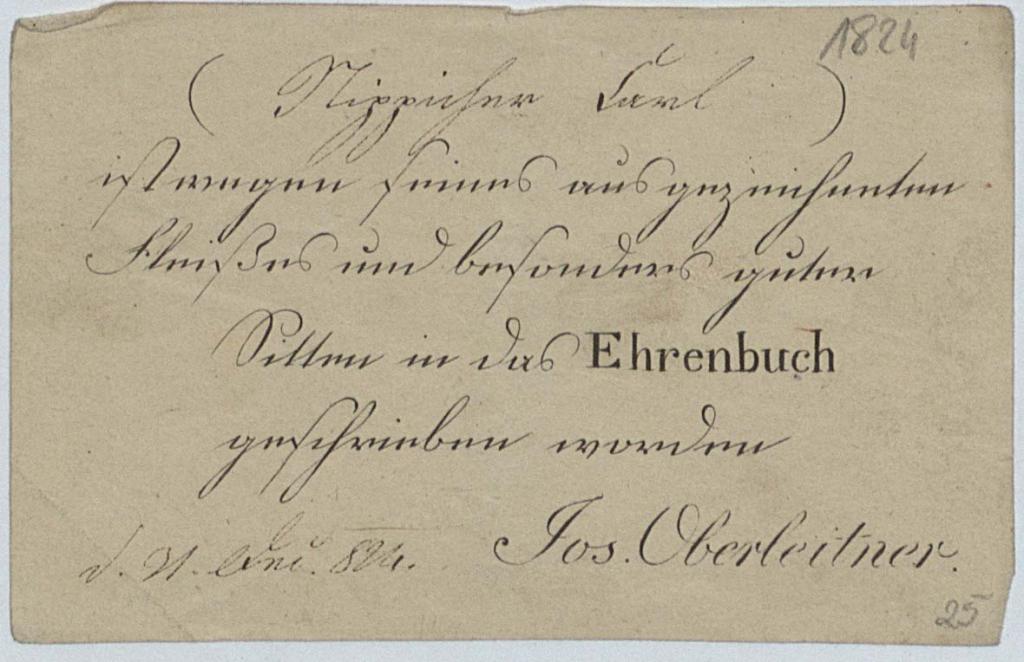 1824
( Nippicher Carl )
ist wegen seines ausgezeichneten
Fleißes und besonders guter
Sitten in das Ehrenbuch
geschrieben worden
Jos. Oberleitner.
d. 21. 824.
25